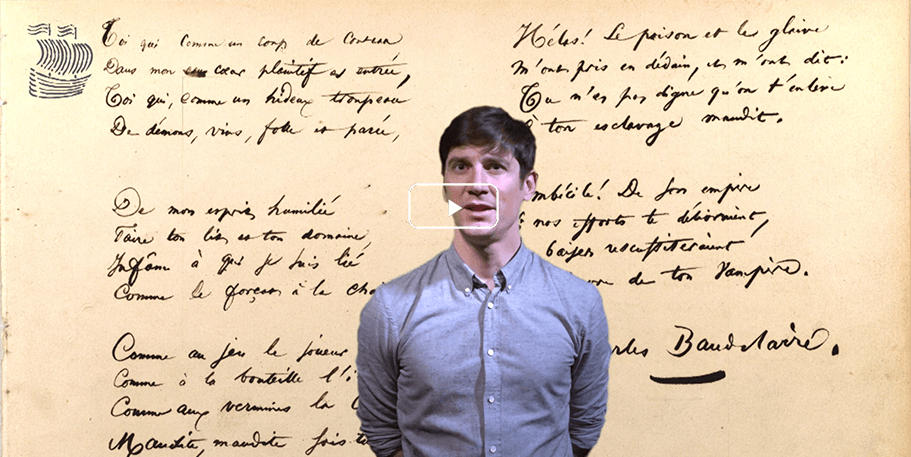 Toi qui comme un coup de couteau
Dans mon cœur plaintif es entrée,
Toi qui, comme un hideux troupeau
De démons, vins, folle et parée,
De mon esprit humilié
Faire ton lit et ton domaine,
Infâme à qui je suis lié
Comme le forçat à la
Comme au jeu le joueur
Comme à la bouteille
Comme aux vermines la
Maudite, maudite sois
Hélas! Le poison et le glaive
m'ont pris en dédain, et m'ont dit:
Tu n'es pas digne qu'on t'enlève
ton esclavage maudit.
mbécile! De son empire
nos efforts te délivraient,
baisers ressusciteraient
de ton Vampire.
rles Baudelaire.